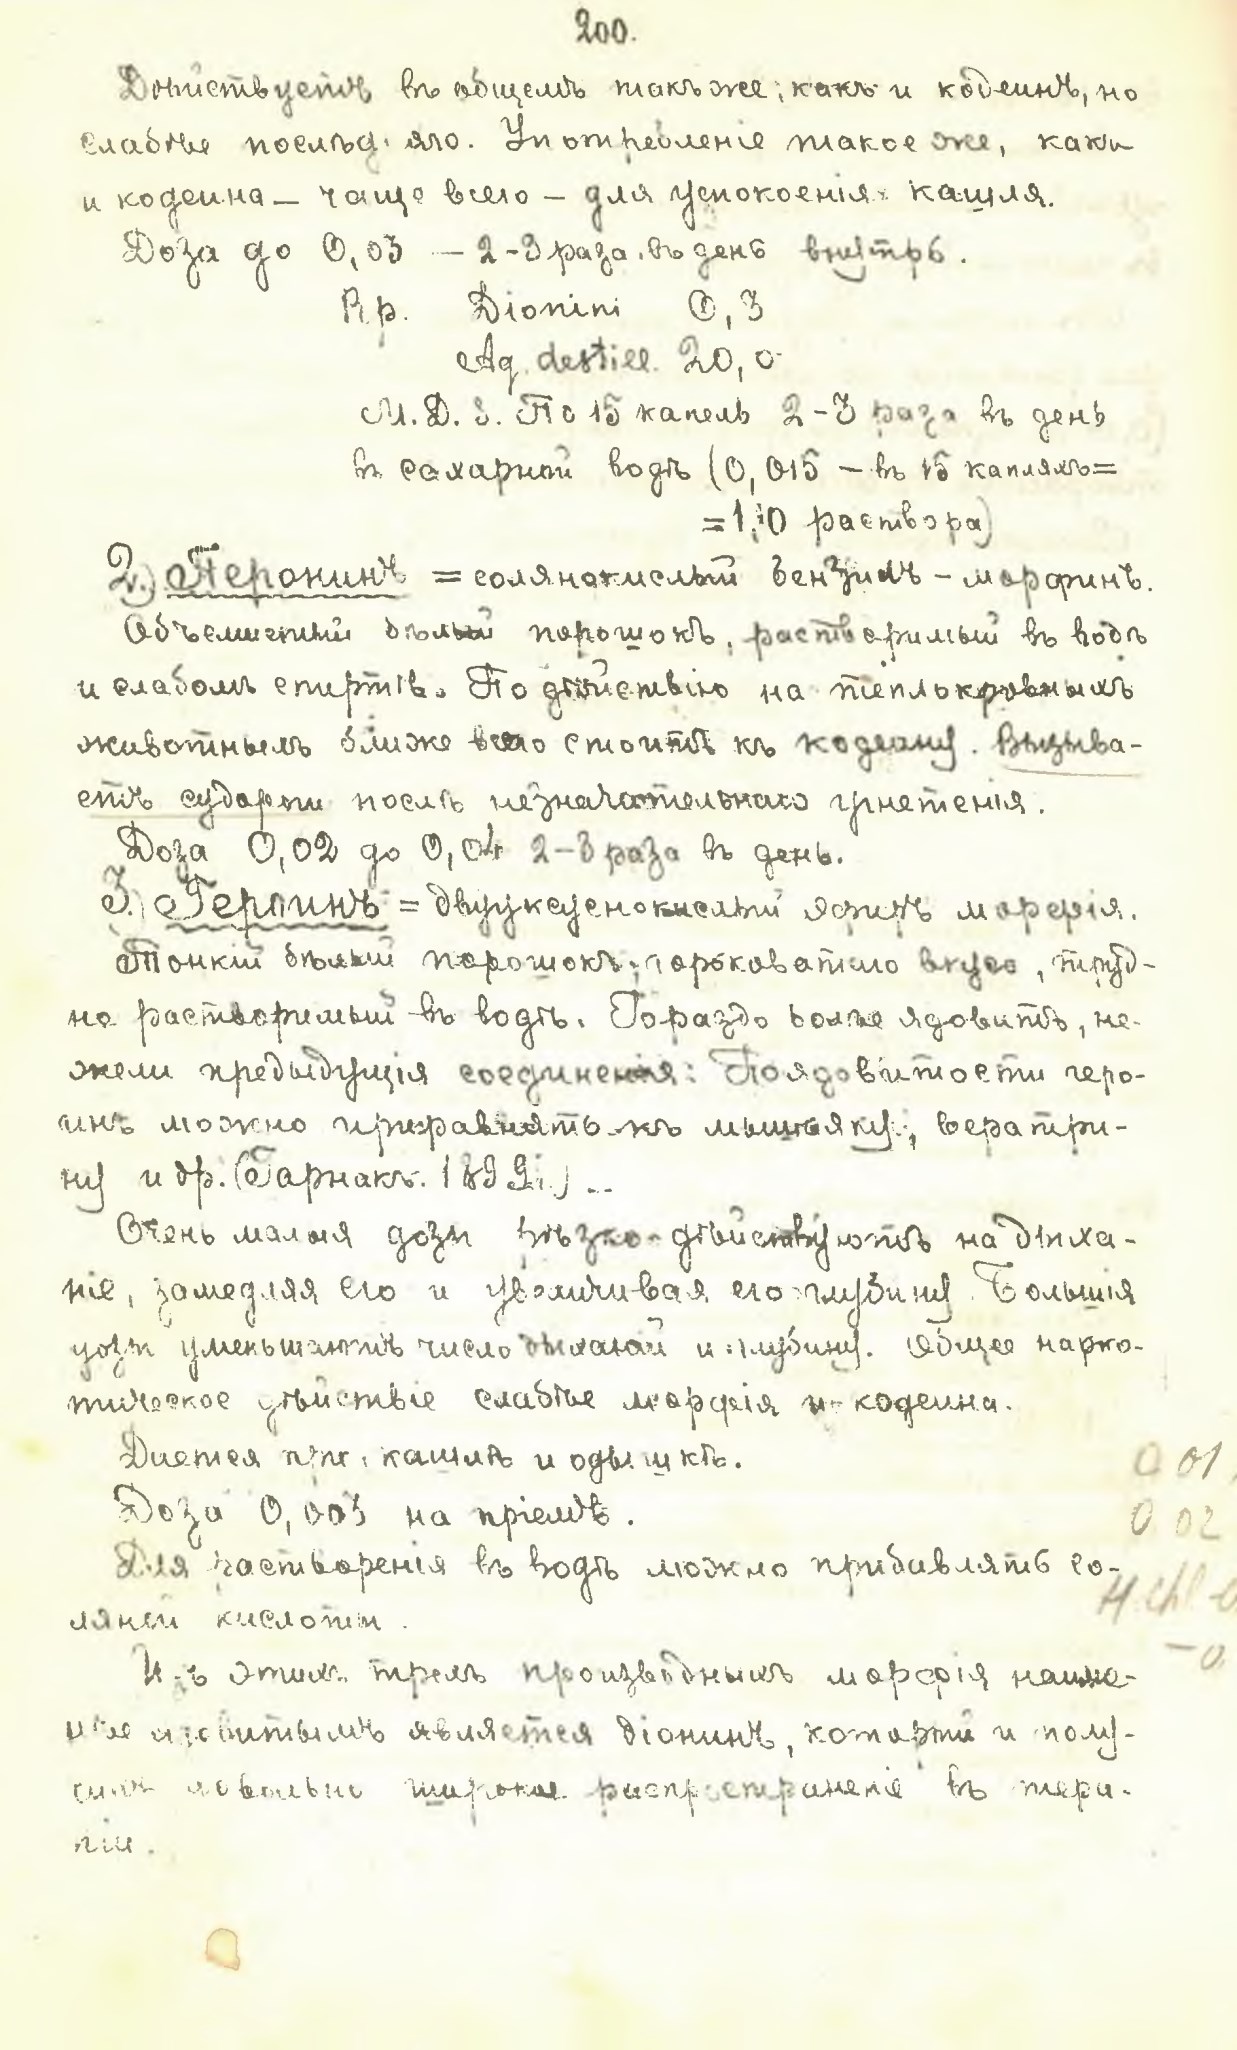 200.
Дѣйствуетъ въ общемъ такъ же, какъ и кодеинъ, но
слабѣе послѣд. яго. Употребленіе такое же, какъ
и кодеина — чаще всего — для успокоенія кашля.
Доза до 0,03 — 2-3 раза въ день внутрь.
Rp. Dionini 0,3
Aq. destill. 20,0
M.D.S. По 15 капель 2-3 раза въ день
въ сахарной водѣ (0,015 — въ 15 капляхъ=
=1,0 раствора)
2.) Перонинъ = солянокислый бензилъ-морфинъ.
Объемистый бѣлый порошокъ, растворимый въ водѣ
и слабомъ спиртѣ. По дѣйствію на теплокровныхъ
животныхъ ближе всего стоитъ къ кодеину. Вызыва-
етъ судороги послѣ незначительнаго угнетенія.
Доза 0,02 до 0,04 2-3 раза въ день.
3.) Героинъ = двууксуснокислый эфиръ морфія.
Тонкій бѣлый порошокъ, горьковатаго вкуса, труд-
но растворимый въ водѣ. Гораздо болѣе ядовитъ, не-
жели предыдущія соединенія: По ядовитости геро-
инъ можно приравнять къ мышьяку, вератри-
ну и др. (Гарнакъ. 1899 г.) ..
Очень малыя дозы рѣзко дѣйствуютъ на дыха-
ніе, замедляя его и увеличивая его глубину. Большія
дозы уменьшаютъ число дыханій и глубину. Общее нарко-
тическое дѣйствіе слабѣе морфія и кодеина.
Дается при кашлѣ и одышкѣ.
Доза 0,003 на пріемъ.
0 01
0 02
Для растворенія въ водѣ можно прибавлять со-
ляной кислоты.
Изъ этихъ трехъ производныхъ морфія наиме-
нѣе ядовитымъ является діонинъ, который и полу-
чилъ довольно широкое распространеніе въ тера-
піи.